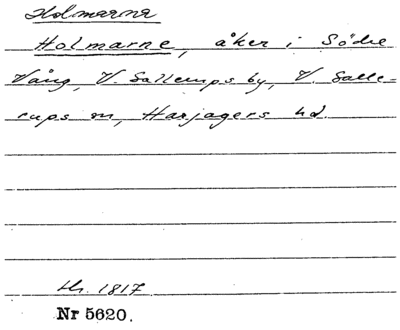 Holmarna
Holmarne, åker i Södre
Vång, V. Sallerups by, V. Salle-
rups sn, Harjagers hd.
Hr. 1817
Nr 5620.